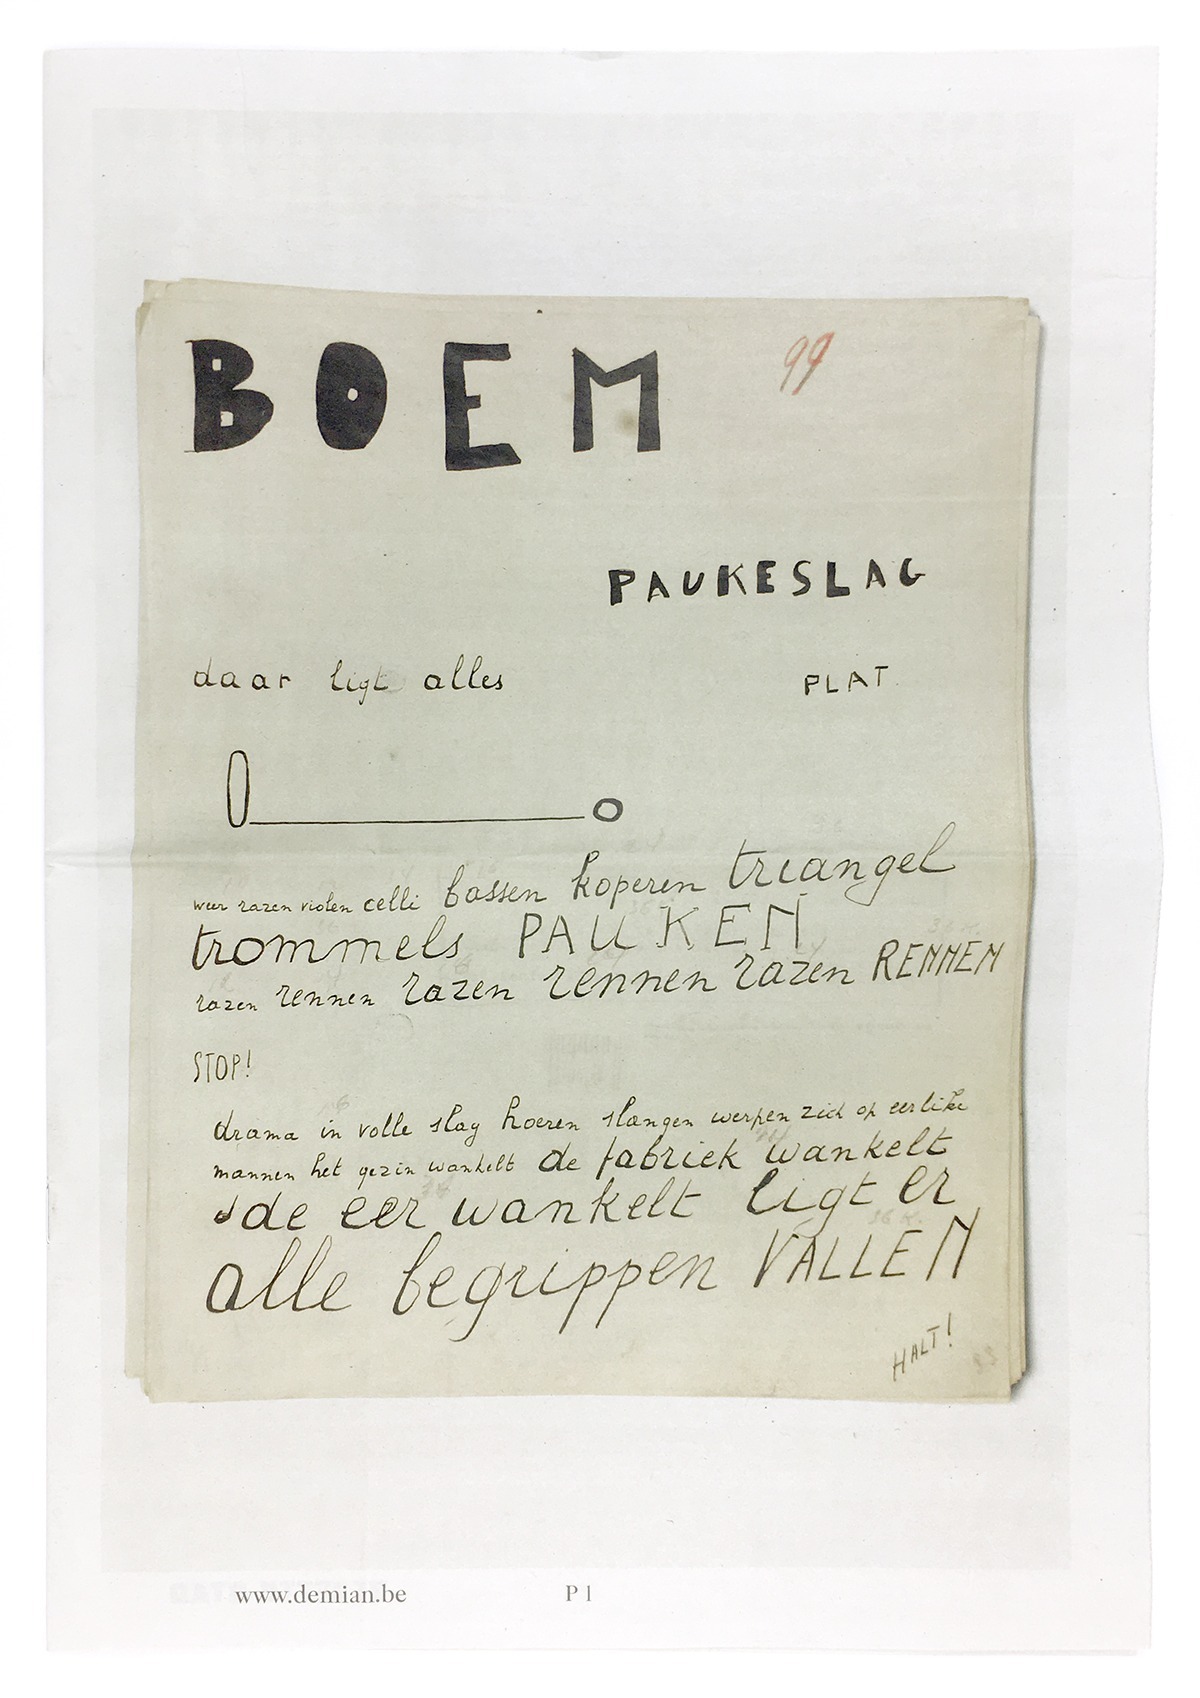 BOEM 99
PAUKESLAG
daar ligt alles PLAT
O____________o
weer razen violen celli bassen koperen triangel
trommels PAUKEN
razen rennen razen rennen razen RENNEN
STOP!
drama in volle slag hoeren slangen werpen zich op eerlike
mannen het gezin wankelt de fabriek wankelt
de eer wankelt ligt er
alle begrippen VALLEN
HALT!
www.demian.be P 1